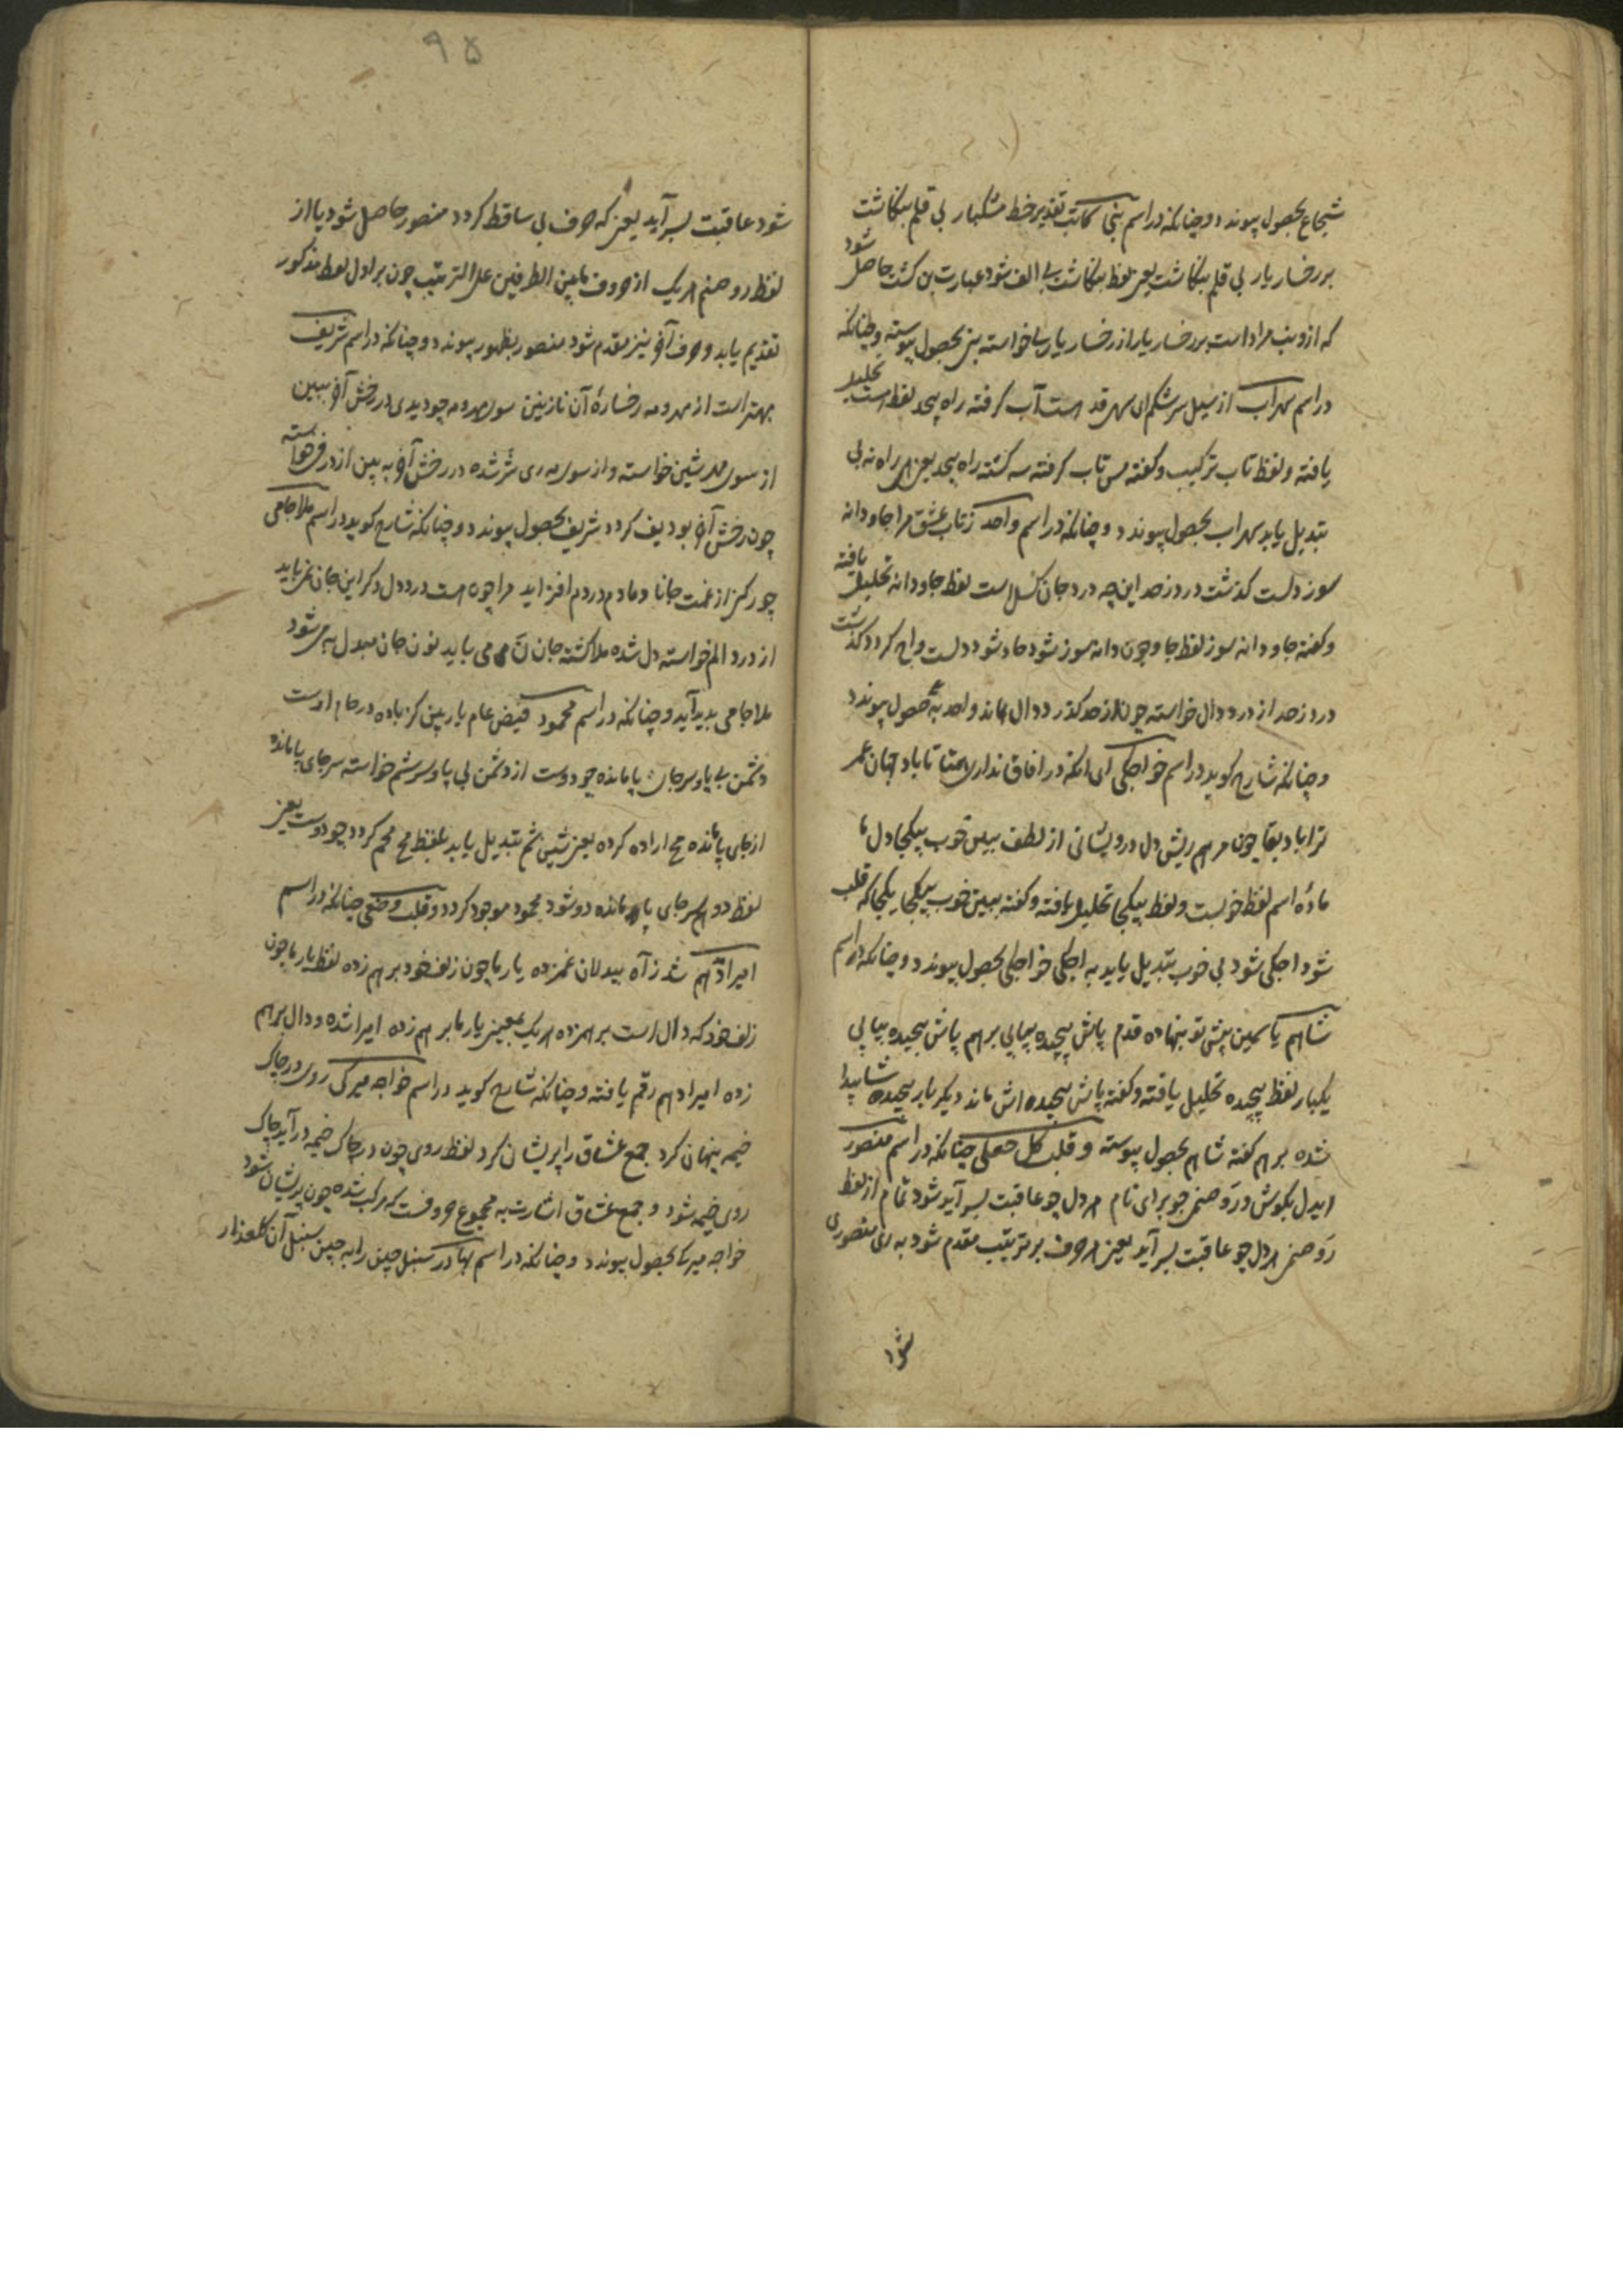 شجاع بحصول پیوندد و چنانکه در اسم بنی کاتب تقدیر خط مشکبار بی قلم بنکاشت
بر رخسار یار بی قلم بنکاشت یعنی لفظ بنکاشت بی الف شود عبارت بن کشت حاصل شود
که ازو بن مراد است بر رخسار یار از رخسار یار یا خواسته بنی بحصول پیوسته و چنانکه
در اسم سهراب از سیل سرشکم ای سهی قد است آب کرفته راه پیحد لفظ است تحلیل
یافته و لفظ تاب ترکیب و کفته س تاب کرفته سه کشته راه پیحد یعنی راه نه بی
تبدیل یابد سهراب بحصول پیوندد و چنانکه در اسم واحد ز تاب عشق مرا جاودانه
سوز دلست کذشت درد ز حد این چه درد جان کسل است لفظ جاودانه تحلیل یافته
و کفته جاودانه سوز لفظ جا و چون دانه سوز شود حاد شود دلست واح کردد کذشت
درد ز حد از درد دال خواسته چون از حد کذرد دال ماند واحد بحصول پیوندد
و چنانکه شارح کوید در اسم خواجکی ای انکه در افاق نداری همتا تا باد جهان عمر
ترا باد بقا چون مرهم ریش دل درویشانی از لطف ببین خوب بیکجا دل ما
ماده اسم لفظ خوبست و لفظ بیکجا تحلیل یافته و کفته ببین خوب بیکجا یکجا که قلب
شود اجکی شود بی خوب تبدیل یابد به اجکی خواجکی بحصول پیوندد و چنانکه در اسم
شاهم یاسمین پیش تو بنهاده قدم پاش پیچیده بیابی برهم پاش پیچیده بیابی
یکبار لفظ پیچیده تحلیل یافته و کفته پاش پیچیده اش ماند دیکر بار پیچیده شا پیدا
شده برهم کفته شاهم بحصول پیوسته و قلب کل جعلی چنانکه در اسم منصور
ایدل بکوش در رو صنمی جو برای نام هر دل چو عاقبت بسر آید شود تمام از لفظ
رو صنمی هر دل چو عاقبت بسر آید یعنی هر حرف بر ترتیب مقدم شود به ری منصوری
شود
۹۵
شود عاقبت بسر آید یعنی که حرف بی ساقط کردد منصور حاصل شود یا از
لفظ رو صنم هر یک از حروف مابین الطرفین علی الترتیب چون بر اول لفظ مذکور
تقدیم یابد و حرف آخر نیز مقدم شود منصور بظهور پیوندد و چنانکه در اسم شریف
بهتر است از مهر و مه رخساره آن نازنین سوی مهر و مه چو دیدی در رخش آخر ببین
از سوی مهر شین خواسته و از سوی مه ری شر شده در رخش آخر به بین از در فی خواسته
چون رخش آخر بود یف کردد شریف بحصول پیوندد و چنانکه شارح کوید در اسم ملا جامی
چو رکز از غمت جانا دمادم دردم افزاید مرا چون هست درد دل دکر این جان نمی باید
از درد الم خواسته دل شده ملا کشته جان ن می می باید نون جان مبدل به می شود
ملا جامی پدید آید و چنانکه در اسم محمود فیض عام یار بین کز باده در جام اوست
دشمن بی پا و سر جای پا مانده چو دوست از دشمن بی پا و سر شم خواسته سر جای پا مانده
از جای پا مانده مح اراده کرده یعنی شین شم تبدیل یابد بلفظ مح محم کردد چو دوست یعنی
لفظ دو هم سر جای پا مانده دو شود محمود موجود کردد و قلب وضعی چنانکه در اسم
امیرادهم شد ز آه بیدلان غمزده یار ما چون زلف خود برهم زده لفظ یار ما چون
زلف خود که دال است بر همزده هر یک یعنی یار ما برهم زده امیرا شده و دال برهم
زده امیرادهم رقم یافته و چنانکه شارح کوید در اسم خواجه میرکی روی در چاک
خیمه پنهان کرد جمع عشاق را پریشان کرد لفظ روی چون در چاک خیمه در آید چاک
روی خیمه شود و جمع عشاق اشارت به مجموع حروفست که مرکب شده چون پریشان شود
خواجه میرکی بحصول پیوندد و چنانکه در اسم بهادر سنبل چین را به چین سنبل آن کلعذار